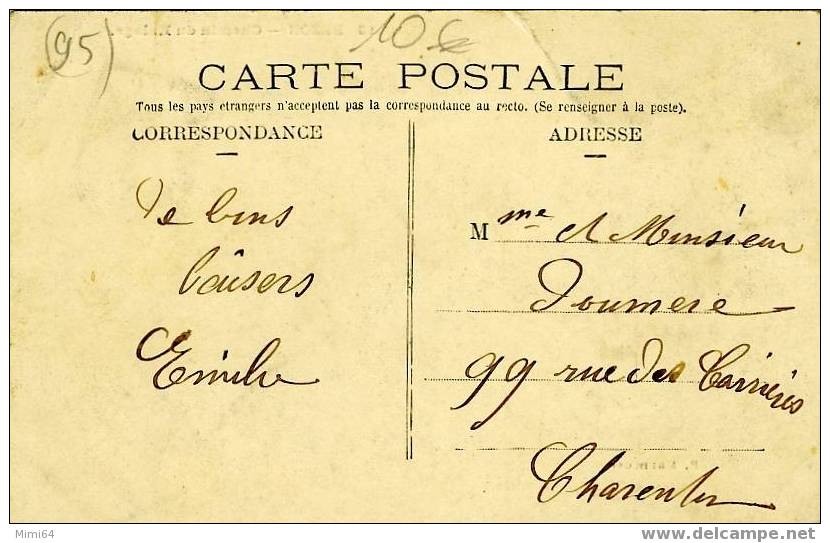 (95)
10 €
CARTE POSTALE
Tous les pays étrangers n'acceptent pas la correspondance au recto. (Se renseigner à la poste).
CORRESPONDANCE
De bons
baisers
Emilie
ADRESSE
Mme et Monsieur
99 rue des Carrières
Charenton
Mimi64
delcampe.net